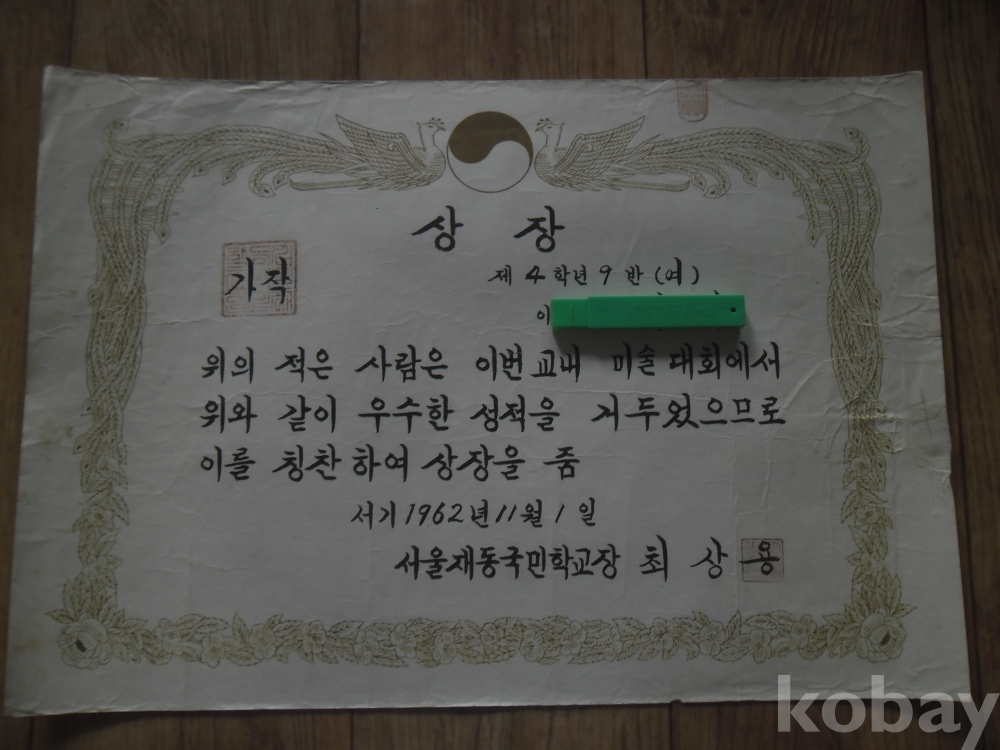 상 장
가작
제 4 학년 9 반 (여)
이
위의 적은 사람은 이번 교내 미술 대회에서
위와 같이 우수한 성적을 거두었으므로
이를 칭찬하여 상장을 줌
서기 1962년 11월 1일
서울재동국민학교장 최 상 용
kobay